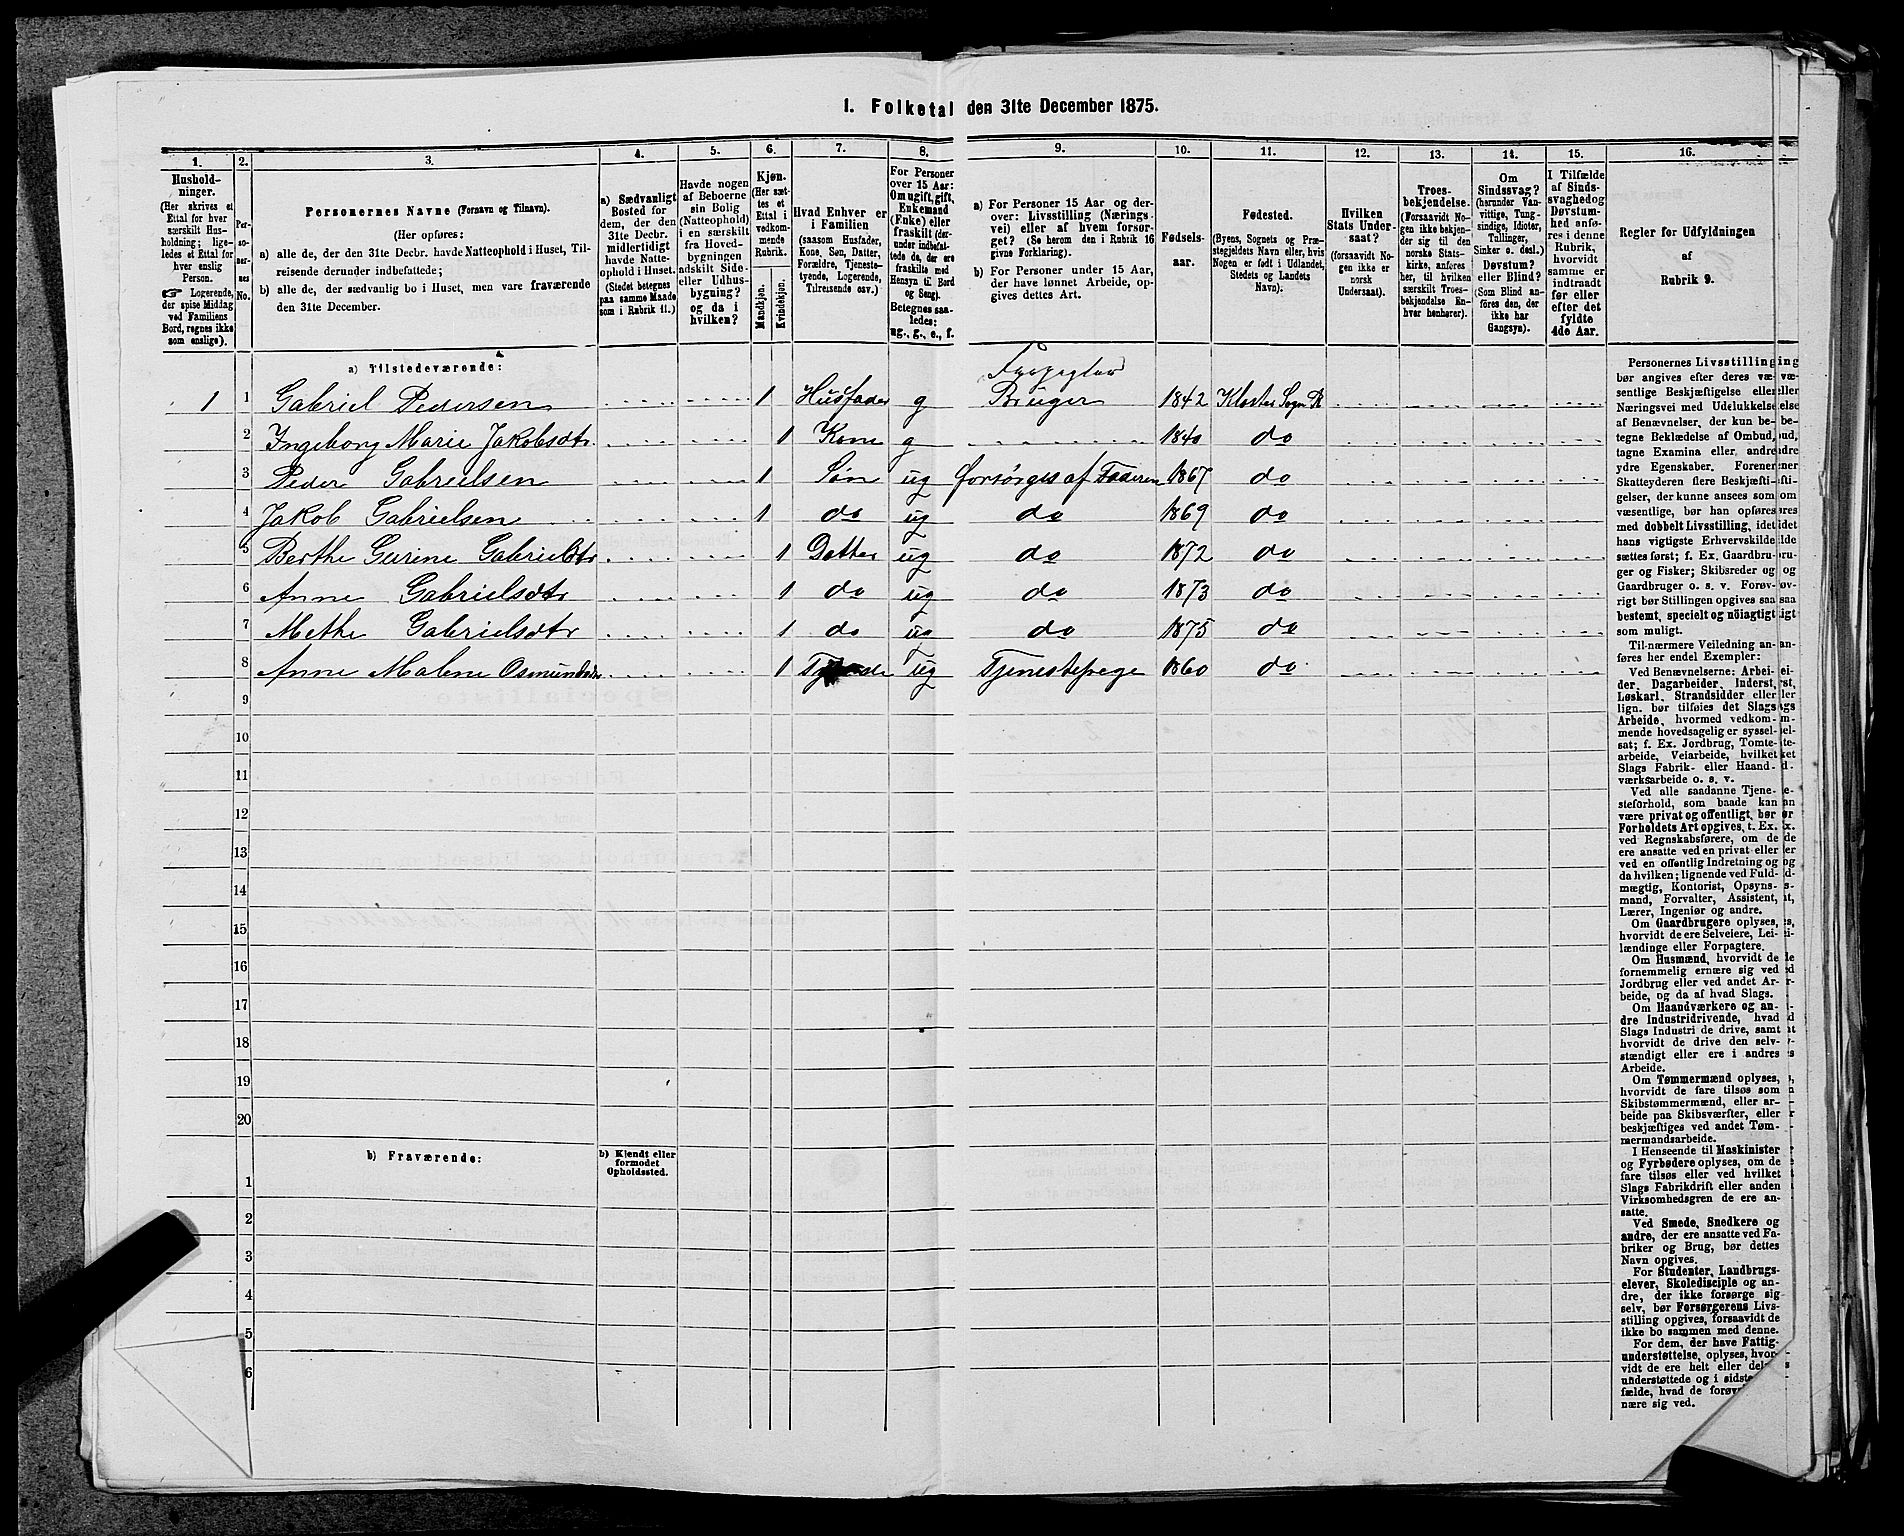 1. Folketal den 31te December 1875.
1. 2. 3. 4. 5. 6. 7. 8. 9. 10. 11. 12. 13. 14. 15. 16.
Hushold-
ninger.
(Her skrives et
Ettal for hver
særskilt Hus-
holdning; lige-
ledes et Ettal for
hver enslig
Person.
☞ Logerende,
der spise Middag
ved Familiens
Bord, regnes ikke
som enslige).
Per-
so-
ner-
nes
No.
Personernes Navne (Fornavn og Tilnavn).
(Her opføres:
a) alle de, der den 31te Decbr. havde Natteophold i Huset, Til-
reisende derunder indbefattede;
b) alle de, der sædvanlig bo i Huset, men vare fraværende
den 31te December.
a) Sædvanligt
Bosted for
dem, der den
31te Decbr.
midlertidigt
havde Natte-
ophold i Huset.
(Stedet betegnes
paa samme Maade
som i Rubrik 11.)
Havde nogen
af Beboerne
sin Bolig
(Natteophold)
i en særskilt
fra Hoved-
bygningen
adskilt Side-
eller Udhus-
bygning?
og da i
hvilken?
Kjøn.
(Her sæt-
tes et
Ettal i
vedkom-
mende
Rubrik.
Mandkjøn.
Kvindekjøn.
Hvad Enhver er
i Familien
(saasom Husfader,
Kone, Søn, Datter,
Forældre, Tjeneste-
tyende, Logerende,
Tilreisende osv.)
For Personer
over 15 Aar:
Om ugift, gift,
Enkemand
(Enke) eller
fraskilt (der-
under indbefat-
tede de, der ere
fraskilte med
Hensyn til Bord
og Seng).
Betegnes saa-
ledes:
ug., g., e., f.
a) For Personer 15 Aar og der-
over: Livsstilling (Nærings-
vei) eller af hvem forsør-
get? (Se herom den i Rubrik 16
givne Forklaring).
b) For Personer under 15 Aar,
der have lønnet Arbeide, op-
gives dettes Art.
Fødsels-
aar.
Fødested.
(Byens, Sognets og Præ-
stegjeldets Navn eller, hvis
Nogen er født i Udlandet,
Stedets og Landets
Navn).
Hvilken
Stats Under-
saat?
(forsaavidt No-
gen ikke er
norsk
Undersaat).
Troes-
bekjendelse.
(Forsaavidt No-
gen ikke bekjen-
der sig til den
norske Stats-
kirke, anføres
her, til hvilken
særskilt Troes-
bekjendelse En-
hver henhører).
Om
Sindssvag?
(herunder Van-
vittige, Tung-
sindige, Idioter,
Tullinger,
Sinker o. desl.)
Døvstum?
eller Blind?
(Som Blind an-
føres den, der
ikke har
Gangsyn).
I Tilfælde
af Sinds-
svaghed og
Døvstum-
hed anfø-
res i denne
Rubrik,
hvorvidt
samme er
indtraadt
før eller
efter det
fyldte
4de Aar.
Regler for Udfyldningen
af
Rubrik 9.
a) Tilstedeværende:
1 1 Gabriel Pedersen 1 Husfader g Bruger 1842 Kloster Sogn R
2 Ingeborg Marie Jakobsdtr 1 Kone g 1840 do
3 Peder Gabrielsen 1 Søn ug forsørges af Faderen 1867 do
4 Jakob Gabrielsen 1 do ug do 1869 do
5 Berthe Gurine Gabrielsdtr 1 Datter ug do 1872 do
6 Anne Gabrielsdtr 1 do ug do 1873 do
7 Methe Gabrielsdtr 1 do ug do 1875 do
8 Anne Malene Osmundsdtr 1 ug Tjenestepige 1860 do
9
10
11
12
13
14
15
16
17
18
19
20
b) Fraværende: b) Kjendt eller
formodet
Opholdssted.
1
2
3
4
5
6
Personernes Livsstilling
bør angives efter deres væ-
sentlige Beskjæftigelse eller
Næringsvei med Udelukkelse
af Benævnelser, der kun be-
tegne Beklædelse af Ombud,
tagne Examina eller, andre
ydre Egenskaber. Forener
Skatteyderen flere Beskjæfti-
gelser, der kunne ansees som
væsentlige, bør han opføres
med dobbelt Livsstilling, idet
hans vigtigste Erhvervskilde
sættes først; f. Ex. Gaardbru-
ger og Fisker; Skibsreder og
Gaardbruger o. s. v. Forøv-
rigt bør Stillingen opgives saa
bestemt, specielt og nöiagtigt
som muligt.
Til nærmere Veiledning an-
føres her endel Exempler:
Ved Benævnelserne: Arbei-
der, Dagarbeider, Inderst,
Løskarl, Strandsidder eller
lign. bør tilføies det Slags
Arbeide, hvormed vedkom-
mende hovedsagelig er syssel-
sat; f. Ex. Jordbrug, Tomte-
arbeide, Veiarbeide, hvilket
Slags Fabrik- eller Haand-
værksarbeide o. s. v.
Ved alle saadanne Tjene-
steforhold, som baade kan
være privat og offentligt, bør
Forholdets Art opgives, t. Ex.
ved Regnskabsførere, om de
ere ansatte ved en privat eller
ved en offentlig Indretning og
da hvilken; lignende ved Fuld-
mægtig, Kontorist, Opsyns-
mand, Forvalter, Assistent,
Lærer, Ingeniør og andre.
Om Gaardbrugere oplyses,
hvorvidt de ere Selveiere, Lei-
lændinge eller Forpagtere.
Om Husmænd, hvorvidt de
fornemmelig ernære sig ved
Jordbrug eller ved andet Ar-
beide, og da af hvad Slags.
Om Haandværkere og an-
dre Industridrivende, hvad
Slags Industri de drive, samt
hvorvidt de drive den selv-
stændigt eller ere i andres
Arbeide.
Om Tømmermænd oplyses,
hvorvidt de fare tilsøs som
Skibstømmermænd, eller ar-
beide paa Skibsværfter, eller
beskjæftiges ved andet Tøm-
mermandsarbeide.
I Henseende til Maskinister
og Fyrbødere oplyses, om de
fare tilsøs eller ved hvilket
Slags Fabrikdrift eller anden
Virksomhedsgren de ere an-
satte.
Ved Smede, Snedkere og
andre, der ere ansatte ved Fa-
briker og Brug, bør dettes
Navn opgives.
For Studenter, Landbrugs-
elever, Skoledisciple og an-
dre, der ikke forsørge sig
selv, bør Forsørgerens Livs-
stilling opgives, forsaavidt de
ikke bo sammen med denne.
For dem, der have Fattig-
understøttelse, oplyses, hvor-
vidt de ere helt eller
understøttede og i sidste
fælde, hvad de
nære sig ved.